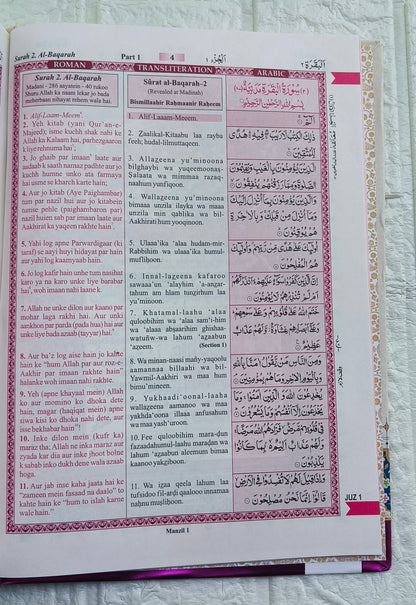 Surah 2. Al-Baqarah
Part 1
4
اَلْجُزْءُ ١
اَلْبَقَرَة ٢
ROMAN
TRANSLITERATION
ARABIC
Surah 2. Al-Baqarah
Madani - 286 aayatein - 40 rukoo
Shuru Allah ka naam lekar jo bada
meherbaan nihayat rehem wala hai.
1. Alif-Laam-Meem
2. Yeh kitab (yani Qur'an-e-
Majeed); isme kuchh shak nahi ke
Allah ka Kalaam hai, parhezgaron ke
liye rehnuma hai
3. Jo ghaib par imaan laate aur
aadaab k saath namaz padhte aur jo
kuchh humne unko ata farmaya
hai usme se kharch karte hain;
4. Aur jo kitab (Aye Paighambar)
tum par nazil hui aur jo kitabein
tumse pehle (paighambaron par)
nazil huien sab par imaan laate aur
Aakhirat ka yaqeen rakhte hain
5. Yahi log apne Parwardigar (ki
taraf) se aayi huyi hidayat par hain
aur yahi log kaamyaab hain.
6. Jo log kafir hain unhe tum nasihat
karo ya na karo unke liye barabar
hai, woh imaan nahi laane k.
7. Allah ne unke dilon aur kaano par
mohar laga rakhi hai. Aur unki
aankhon par parda (pada hua) hai aur
unke liye bada azaab (tayyar) hai.
8. Aur ba'z log aise hain jo kahte
hain ke "hum Allah par aur roz-e-
Aakhir par imaan rakhte hain"
halanke woh imaan nahi rakhte.
9. Yeh (apne khayaal mein) Allah
ko aur momino ko dhoka dete
hain, magar (haqiqat mein) apne
siwa kisi ko dhoka nahi dete, aur
isse bekhabar hain
10. Inke dilon mein (kufr ka)
maraz tha, Allah ne inka maraz aur
zyada kar dia aur inke jhoot bolne
k sabab inko dukh dene wala azaab
hoga.
11. Aur jab inse kaha jaata hai ke
"zameen mein fasaad na daalo" to
kahte hain ke "hum to islah karne
wale hain."
Sûrat al-Baqarah-2
(Revealed at Madinah)
Bismillaahir Rahmaanir Raheem
1. Alif-Laam-Meem.
2. Zaalikal-Kitaabu laa raybu
feeh; hudal-lilmuttaqeen.
3. Allageena yu'minoona
bilghaybi wa yuqeemoonas-
Salaata wa mimmaa razaq-
naahum yunfiqoon.
4. Wallageena yu'minoona
bimaaa unzila ilayka wa maaa
unzila min qablika wa bil-
Aakhirati hum yooqinoon.
5. Ulaaa'ika 'alaa hudam-mir-
Rabbihim wa ulaaa'ika humul-
mufliḥoon.
6. Innal-lageena kafaroo
sawaaa'un 'alayhim 'a-angar-
tahum am lham tungirhum laa
yu'minoon.
7. Khatamal-laahu 'alaa
quloobihim wa 'alaa sam'i-him
wa 'alaaa absaarihim ghishaa-
watuñw-wa lahum 'agaabun
'azeem.
(Section 1)
8. Wa minan-naasi mañy-yaqoolu
aamannaa billaahi wa bil-
Yawmil-Aakhiri wa maa hum
bimu'mineen.
9. Yukhaadi'oonal-laaha
wallageena aamanoo wa maa
yakhda'oona illaaa anfusahum
wa maa yash'uroon.
10. Fee quloobihim maraḍun
fazaadahumul-laahu maraḍaṅ wa
lahum 'agaabun aleemum bimaa
kaanoo yakgiboon.
11. Wa igaa qeela lahum laa
tufsidoo fil-arḍi qaalooo innamaa
naḥnu muṣliḥoon.
Manzil 1
(٢) سُوْرَةُ الْبَقَرَةِ مَدَنِيَّةٌ (٨٧)
بِسْمِ اللهِ الرَّحْمٰنِ الرَّحِيْمِ
الٓمّٓ ۚ۝١
ذٰلِكَ الْكِتٰبُ لَا رَيْبَ ۛۚ فِيْهِ ۛۚ هُدًى
لِّلْمُتَّقِيْنَ ۝٢
الَّذِيْنَ يُؤْمِنُوْنَ بِالْغَيْبِ وَيُقِيْمُوْنَ
الصَّلٰوةَ وَمِمَّا رَزَقْنٰهُمْ يُنْفِقُوْنَ ۝٣
وَالَّذِيْنَ يُؤْمِنُوْنَ بِمَآ اُنْزِلَ اِلَيْكَ
وَمَآ اُنْزِلَ مِنْ قَبْلِكَ ۚ وَبِالْاٰخِرَةِ
هُمْ يُوْقِنُوْنَ ۝٤
اُولٰٓئِكَ عَلٰى هُدًى مِّنْ رَّبِّهِمْ ۗ وَاُولٰٓئِكَ
هُمُ الْمُفْلِحُوْنَ ۝٥
اِنَّ الَّذِيْنَ كَفَرُوْا سَوَآءٌ عَلَيْهِمْ ءَاَنْذَرْتَهُمْ
اَمْ لَمْ تُنْذِرْهُمْ لَا يُؤْمِنُوْنَ ۝٦
خَتَمَ اللهُ عَلٰى قُلُوْبِهِمْ وَعَلٰى سَمْعِهِمْ ۗ
وَعَلٰٓى اَبْصَارِهِمْ غِشَاوَةٌ ۖ وَّلَهُمْ عَذَابٌ
عَظِيْمٌ ۝٧
وَمِنَ النَّاسِ مَنْ يَّقُوْلُ اٰمَنَّا بِاللهِ
وَبِالْيَوْمِ الْاٰخِرِ وَمَا هُمْ بِمُؤْمِنِيْنَ ۝٨
يُخٰدِعُوْنَ اللهَ وَالَّذِيْنَ اٰمَنُوْا ۚ وَمَا
يَخْدَعُوْنَ اِلَّآ اَنْفُسَهُمْ وَمَا يَشْعُرُوْنَ ۝٩
فِيْ قُلُوْبِهِمْ مَّرَضٌ ۙ فَزَادَهُمُ اللهُ مَرَضًا ۚ
وَلَهُمْ عَذَابٌ اَلِيْمٌۢ ۙ بِمَا كَانُوْا
يَكْذِبُوْنَ ۝١٠
وَاِذَا قِيْلَ لَهُمْ لَا تُفْسِدُوْا فِى الْاَرْضِ ۙ
قَالُوْٓا اِنَّمَا نَحْنُ مُصْلِحُوْنَ ۝١١
JUZ 1